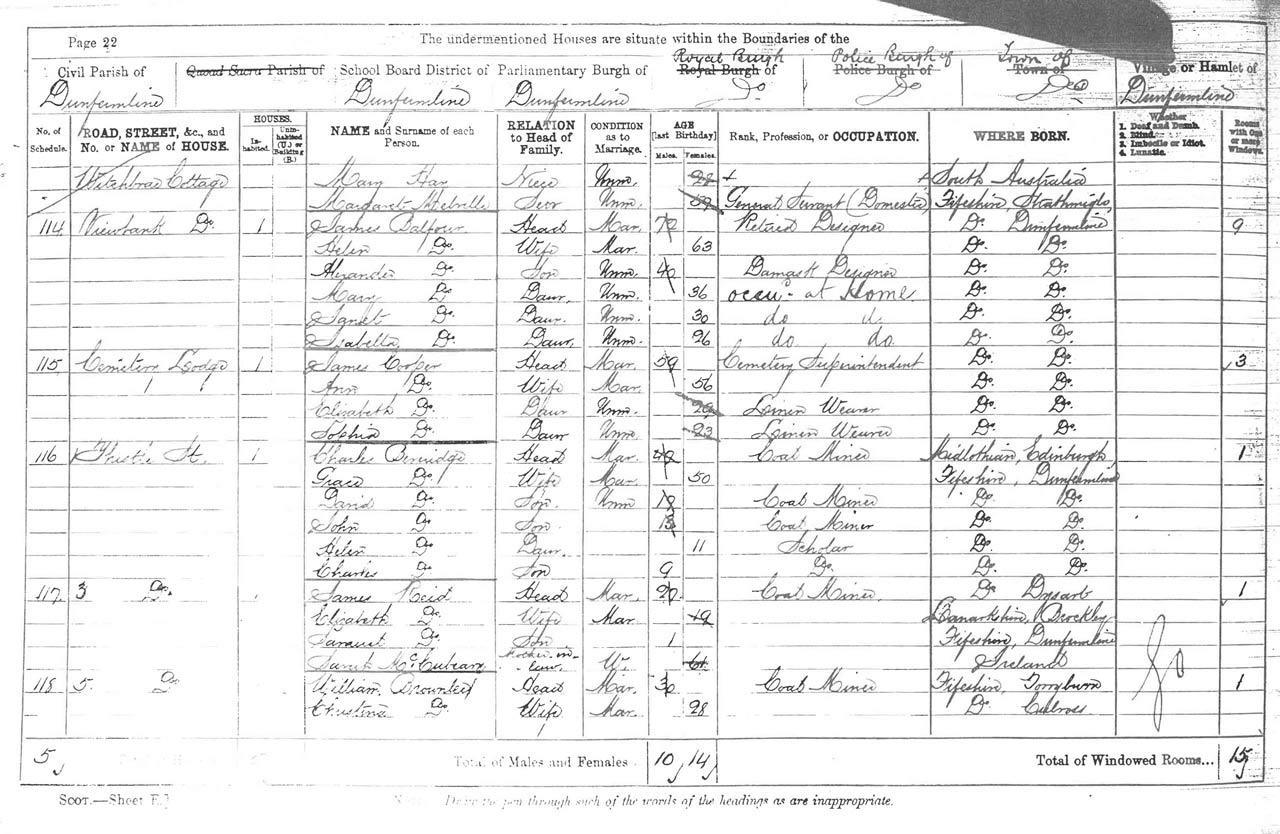 Page 22
The undermentioned Houses are situate within the Boundaries of the
Civil Parish of Quoad Sacra Parish of School Board District of Parliamentary Burgh of Royal Burgh of Royal Burgh of Police Burgh of Police Burgh of Town of Town of Village or Hamlet of
Dunfermline Dunfermline Dunfermline Do Do Do Dunfermline
No. of Schedule. ROAD, STREET, &c., and No. or NAME of HOUSE. HOUSES. Inhabited. Uninhabited (U.) or Building (B.) NAME and Surname of each Person. RELATION to Head of Family. CONDITION as to Marriage. AGE [last Birthday] Males. Females. Rank, Profession, or OCCUPATION. WHERE BORN. Whether 1. Deaf and Dumb. 2. Blind. 3. Imbecile or Idiot. 4. Lunatic. Rooms with One or more Windows.
Cottage Mary Hay Niece Unm. South Australia
Margaret Melville Serv Unm. General Servant (Domestic) Fifeshire, Strathmiglo
114 Viewbank Do. 1 James Balfour Head Mar. 72 Retired Designer Do. Dunfermline 9
Helen Do. Wife Mar. 63 Do. Do.
Alexander Do. Son Unm. Damask Designer Do. Do.
Mary Do. Daur. Unm. 36 occu. at Home Do. Do.
Janet Do. Daur. Unm. 30 do d. Do. Do.
Isabella Do. Daur. Unm. 26 do do. Do. Do.
115 Cemetery Lodge 1 James Cooper Head Mar. 59 Cemetery Superintendent Do. Do. 3
Ann Do. Wife Mar. 56 Do. Do.
Elizabeth Do. Daur Unm. Linen Weaver Do. Do.
Sophia Do. Daur Unm. 23 Linen Weaver Do. Do.
116 St. 1 Charles Beveridge Head Mar. Coal Miner Midlothian, Edinburgh 1
Grace Do. Wife Mar. 50 Fifeshire, Dunfermline
David Do. Son Unm 18 Coal Miner Do. Do.
John Do. Son 13 Coal Miner Do. Do.
Helen Do. Daur. 11 Scholar Do. Do.
Charles Do. Son 9 Do. Do. Do.
117 3 Do. James Reid Head Mar. Coal Miner Do Dysart 1
Elizabeth Do. Wife Mar 19 Lanarkshire,
Do. Son 1 Fifeshire, Dunfermline
Sarah Mother-in-law. 61 Ireland
118 5 Do William Head Mar. Coal Miner Fifeshire, Torryburn 1
Christina Do. Wife Mar. 28 Do. Culross
5 Total of Males and Females 10 14 Total of Windowed Rooms... 15
SCOT.—Sheet E.] Draw the pen through such of the words of the headings as are inappropriate.